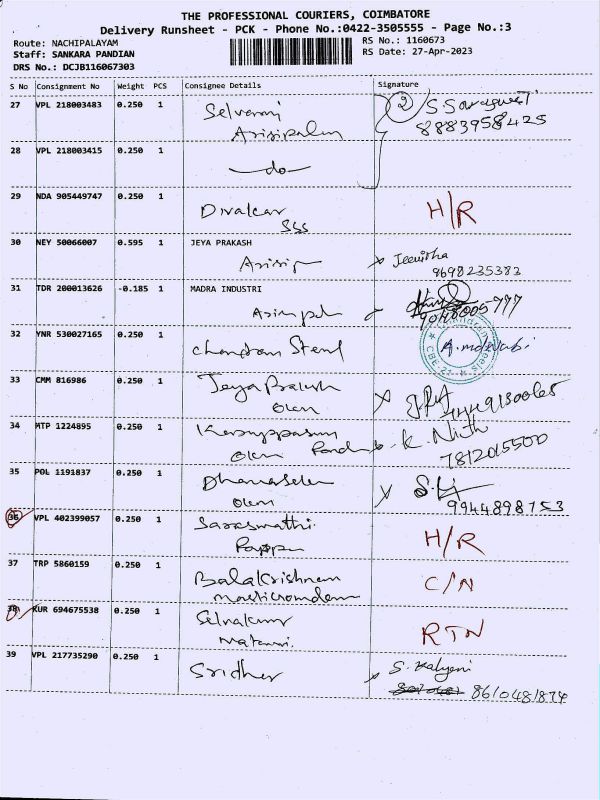 THE PROFESSIONAL COURIERS, COIMBATORE
Delivery Runsheet - PCK - Phone No.:0422-3505555 - Page No.:3
Route: NACHIPALAYAM
RS No.: 1160673
Staff: SANKARA PANDIAN
RS Date: 27-Apr-2023
DRS No.: DCJB116067303
S No Consignment No Weight PCS Consignee Details Signature
27 VPL 218003483 0.250 1 Selvarani 2
Arisipalm 8883958425
28 VPL 218003415 0.250 1
-do-
29 NDA 905449747 0.250 1 Divakar H/R
SSS
30 NEY 50066007 0.595 1 JEYA PRAKASH
Jeevitha
9698235383
31 TDR 200013626 -0.185 1 MADRA INDUSTRI
32 YNR 530027165 0.250 1
Chandram Steel
33 CMM 816986 0.250 1 Jeya Prakash
34 MTP 1224895 0.250 1 K. Nith
7812015500
35 POL 1191837 0.250 1
9944898753
36 VPL 402399057 0.250 1 Saraswathi H/R
Pappu
37 TRP 5860159 0.250 1 Balakrishnan C/N
38 KUR 694675538 0.250 1 Selvakumar RTN
39 VPL 217735290 0.250 1 Sridher S. Kalyani
8610481874